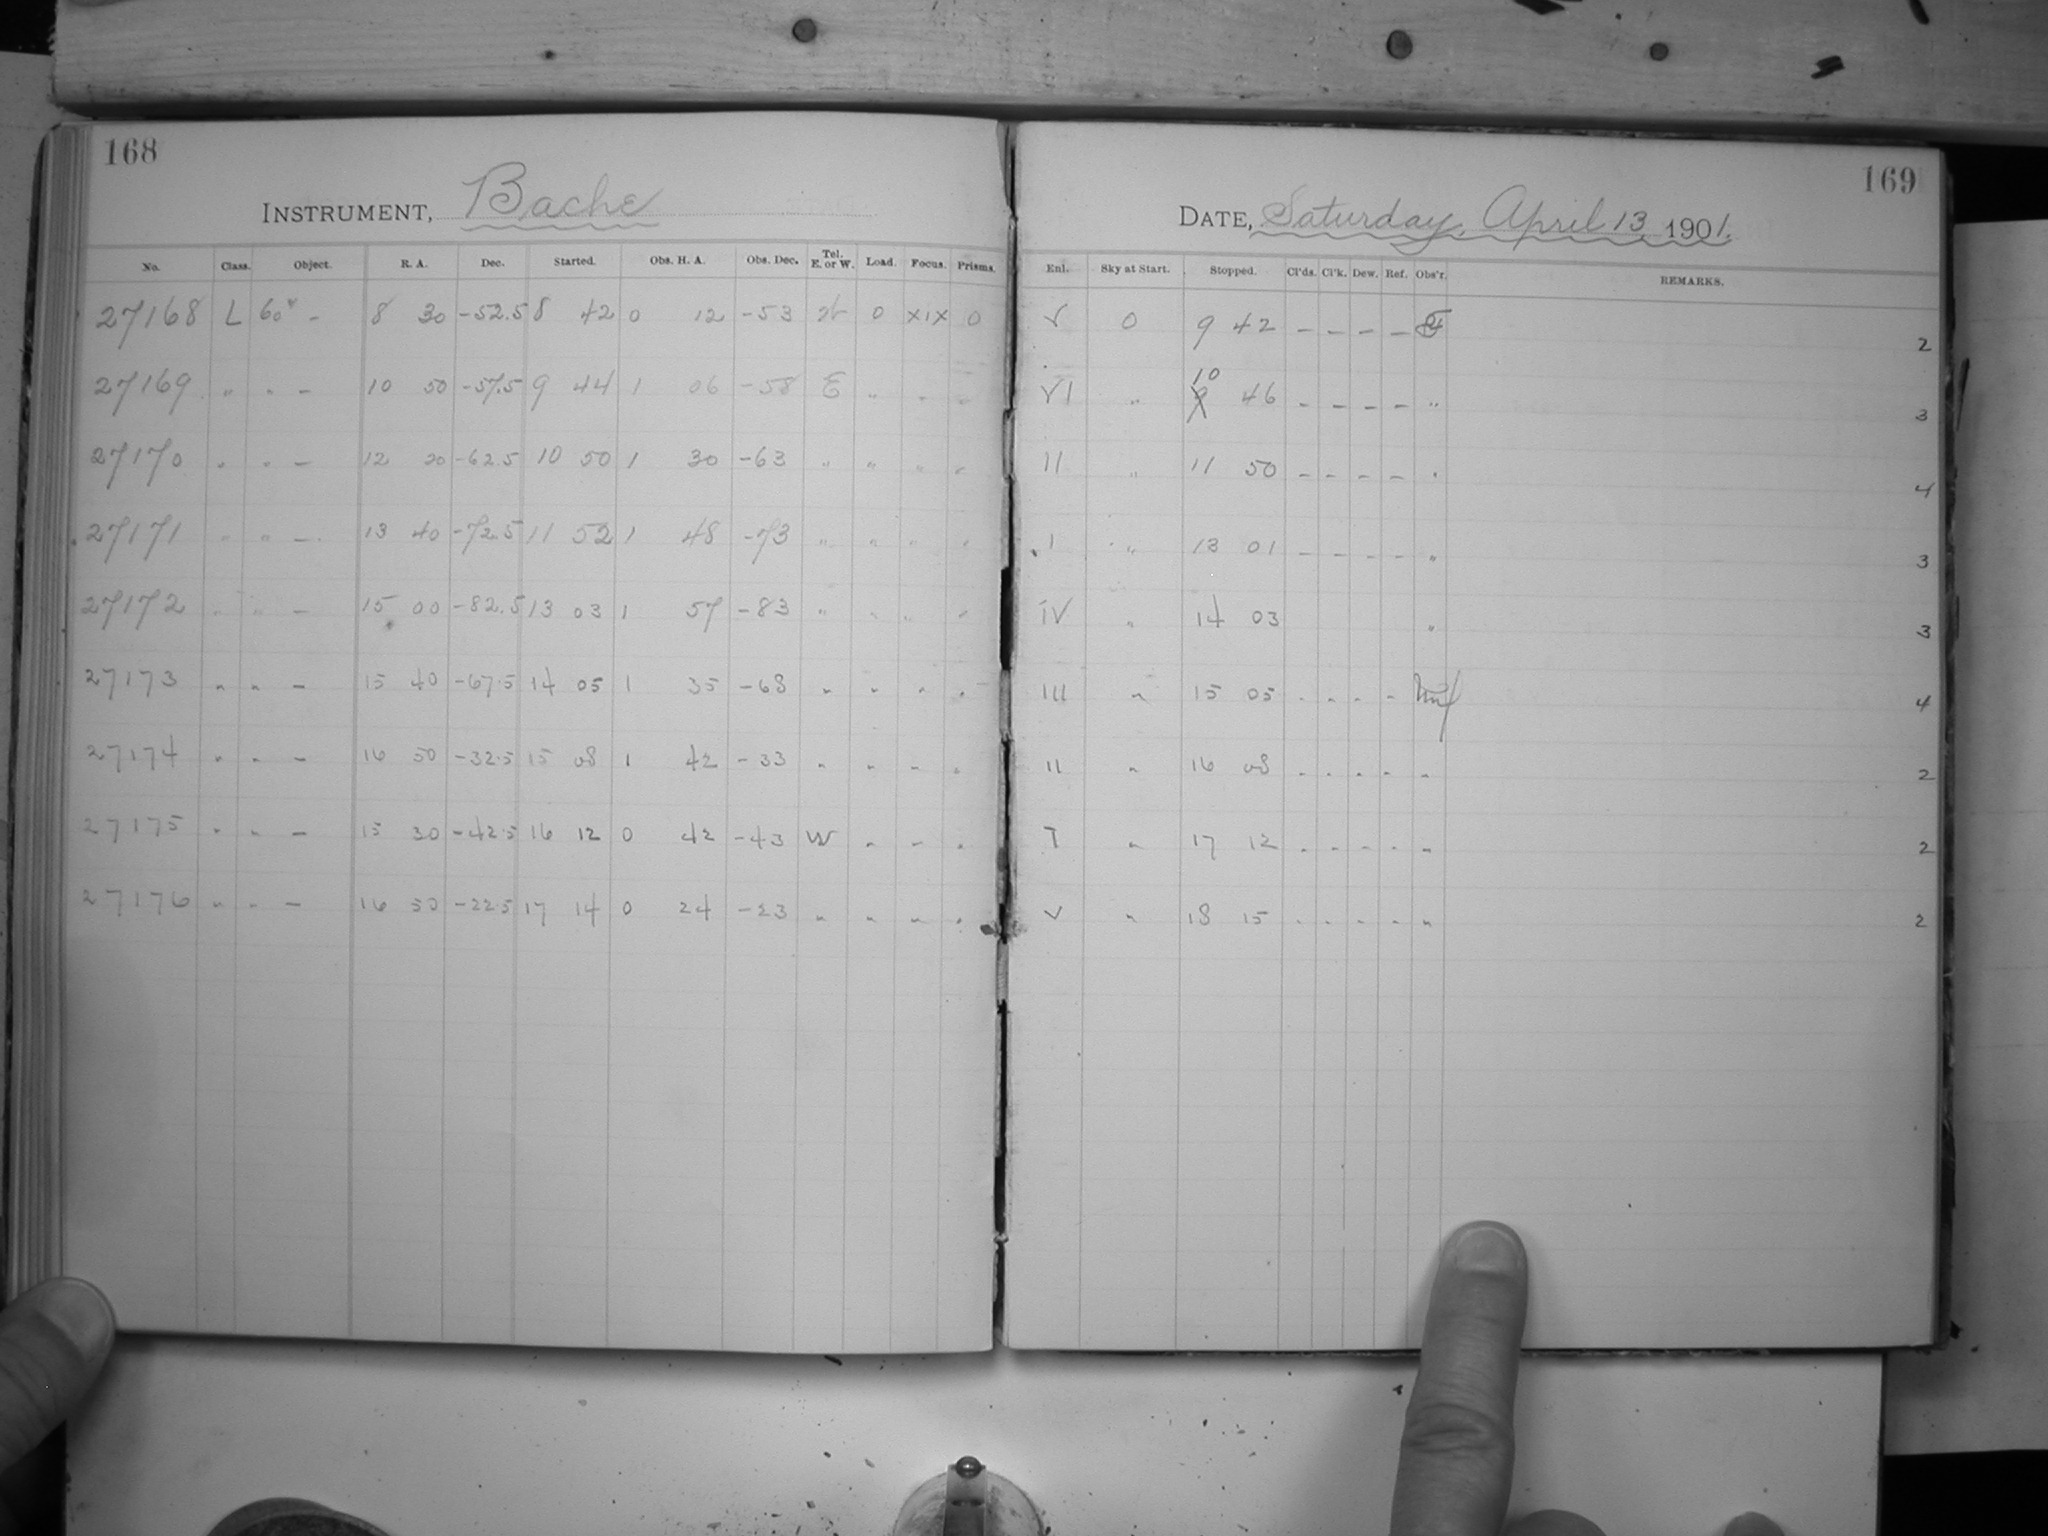 168
INSTRUMENT, Bache
No. Class. Object. R. A. Dec. Started. Obs. H. A. Obs. Dec. Tel. E. or W. Load. Focus. Prisms.
27168 L 60m - 8 30 -52.5 8 42 0 12 -53 W 0 XIX 0
27169 " " - 10 50 -57.5 9 44 1 06 -58 E " " "
27170 " " - 12 20 -62.5 10 50 1 30 -63 " " " "
27171 " " - 13 40 -72.5 11 52 1 48 -73 " " " "
27172 " " - 15 00 -82.5 13 03 1 57 -83 " " " "
27173 " " - 15 40 -67.5 14 05 1 35 -68 " " " "
27174 " " - 16 50 -32.5 15 08 1 42 -33 " " " "
27175 " " - 15 30 -42.5 16 12 0 42 -43 W " " "
27176 " " - 16 50 -22.5 17 14 0 24 -23 " " " "
169
DATE, Saturday, April 13 1901.
Enl. Sky at Start. Stopped. Cl'ds. Cl'k. Dew. Ref. Obs'r. REMARKS.
V 0 9 42 - - - - 2
VI " 10 9 46 - - - - " 3
II " 11 50 - - - - " 4
I " 13 01 - - - - " 3
IV " 14 03 " 3
III " 15 05 - - - - 4
II " 16 08 - - - - " 2
I " 17 12 - - - - " 2
V " 18 15 - - - - " 2